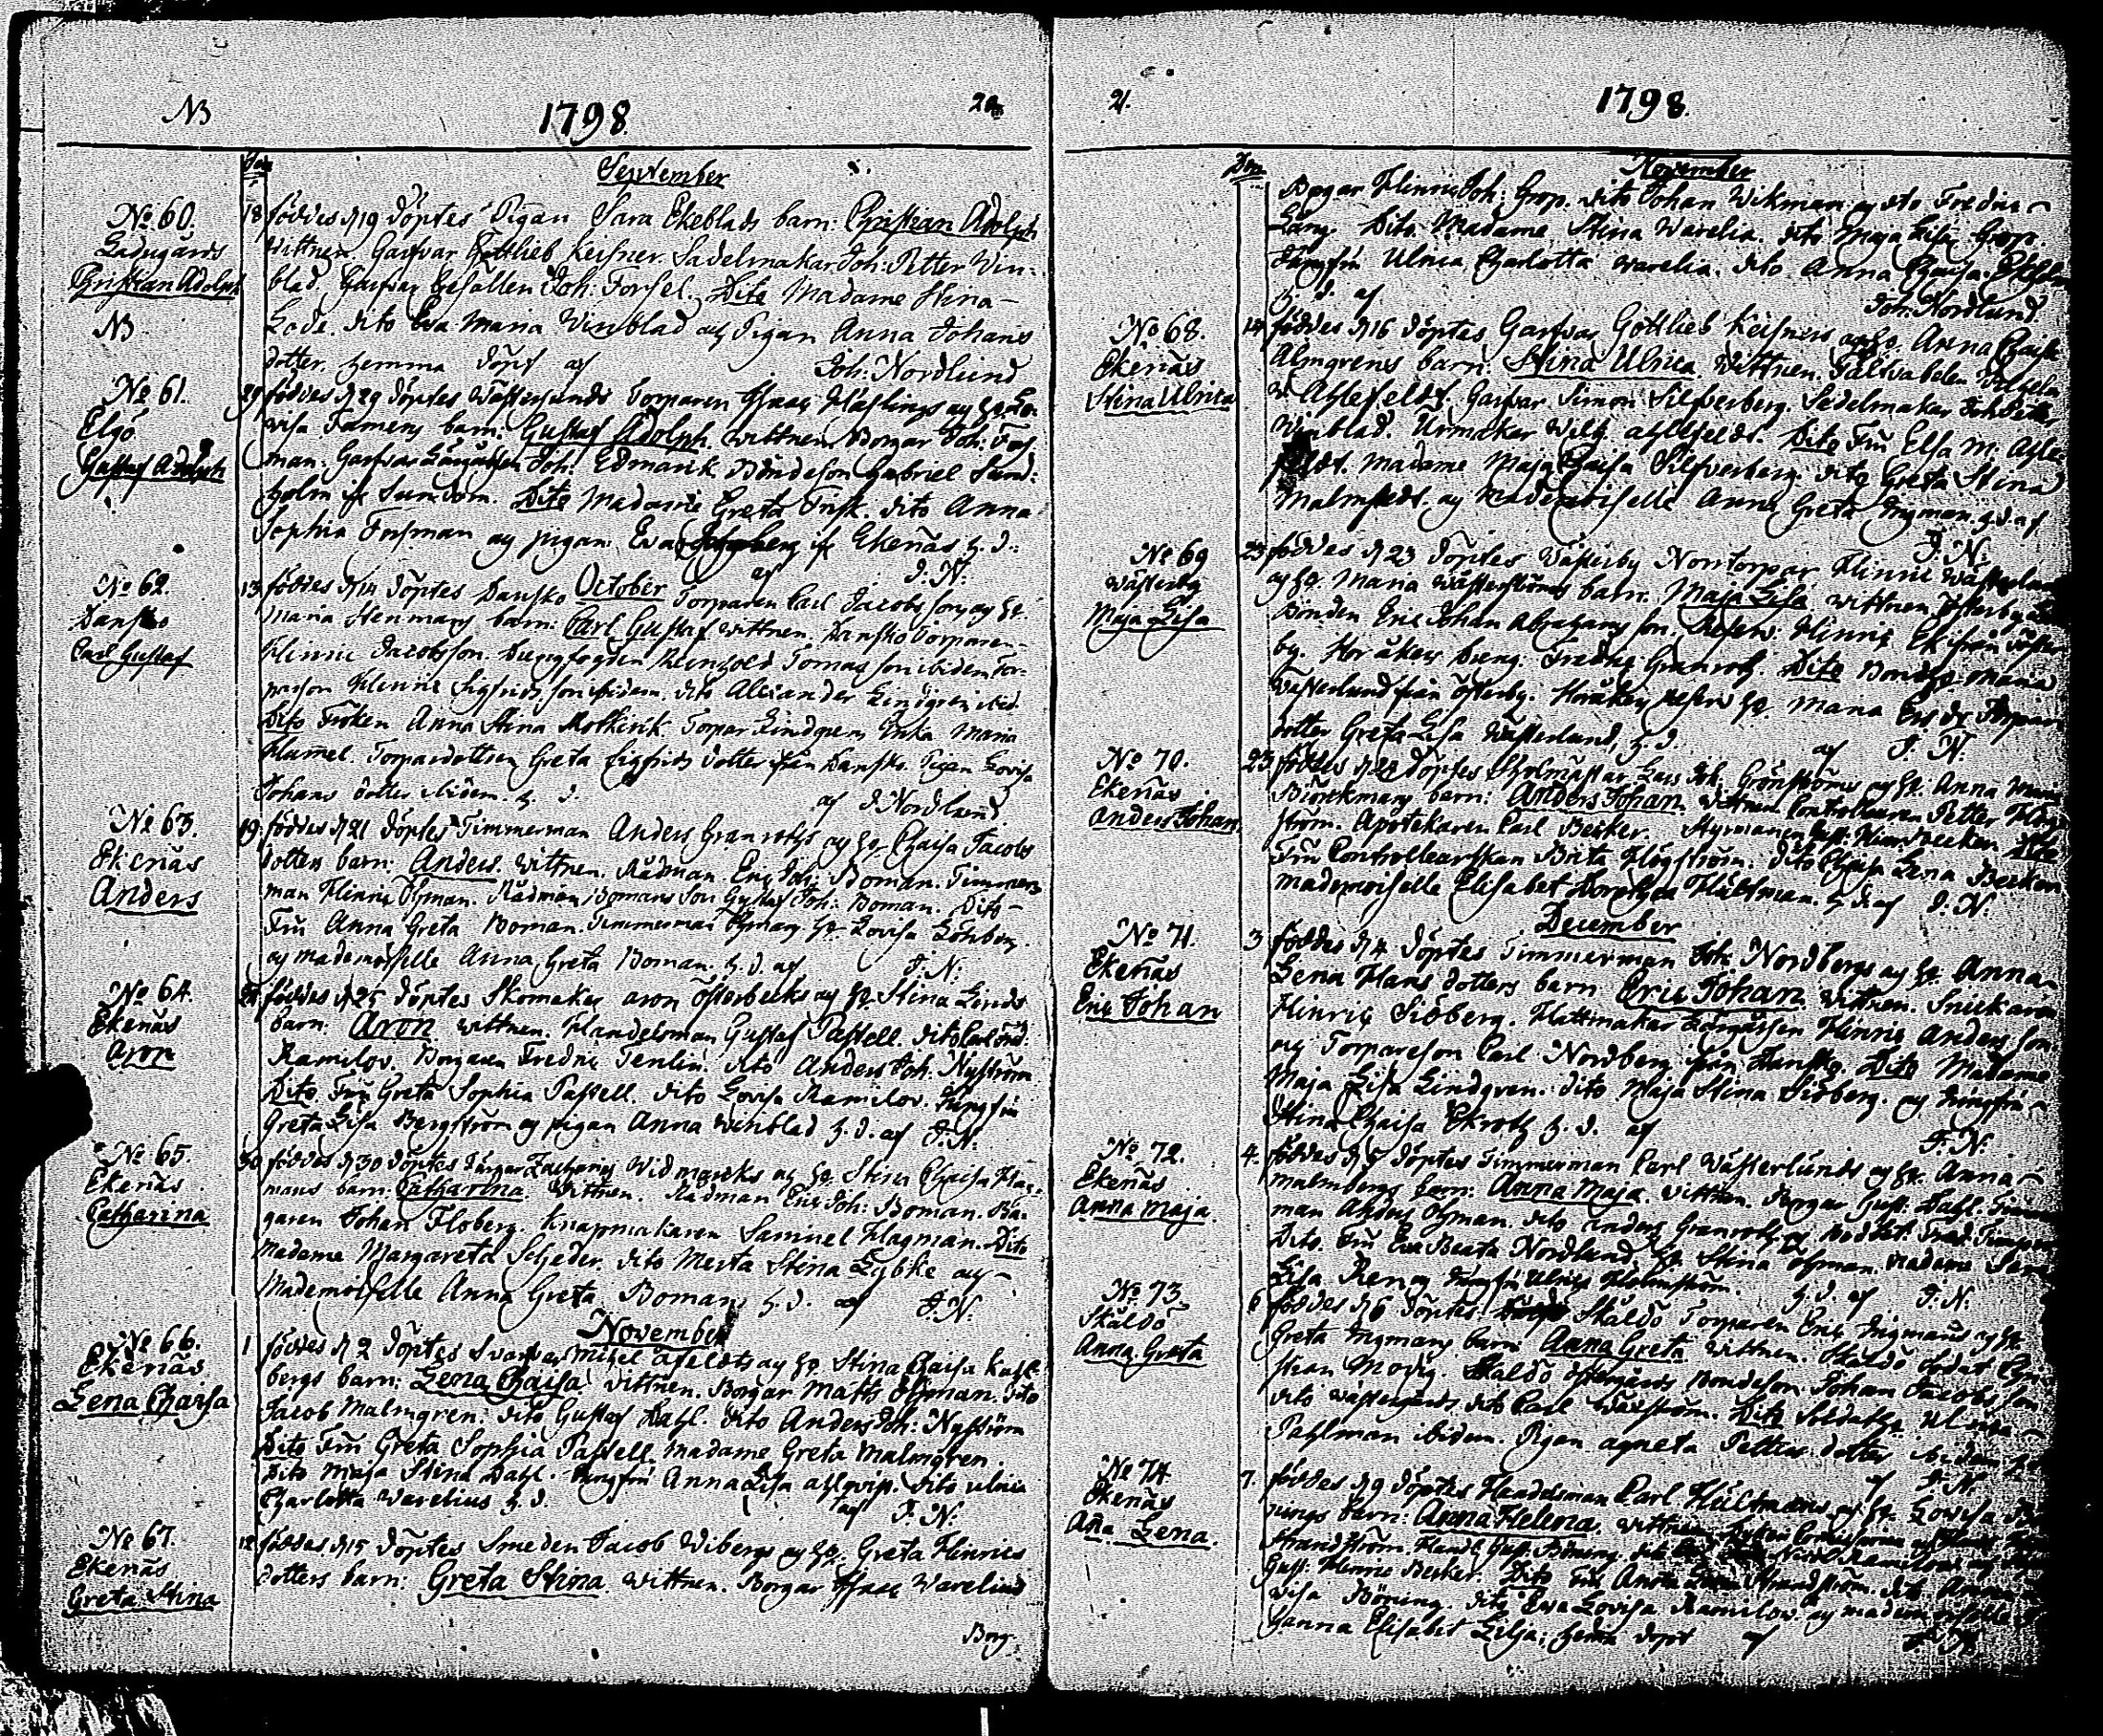 NB
1798.
20
September
No 60.
Ladugårds
Christian Adolph
NB
18 föddes d 19 döptes Pigan Sara Ekeblads barn: Christian Adolph
Wittnen. Garfvar Gottlieb Keisner. Sadelmakar Joh: Petter Win-
blad. Garfvar Gesällen Joh: Forsel. Dito Madame Stina
Lode. dito Eva Maria Winblad och Pigan Anna Johans
dotter. hemma döpt af Joh: Nordlund
No 61.
Elgö
Gustaf Adolph
föddes d 29 döptes Torparen Isaac Häflings och h. Lo-
visa Famens barn: Gustaf Adolph. wittnen Borgar Joh: Fors-
man. Garfvar Joh: Edmark. Bondeson Gabriel Sund-
holm Dito Madame Greta Frisk. dito Anna
Sophia Forsman och pigan Eva Ekenäs h. d.
af J. N:
No 62.
Dansko
Carl Gustaf
October
13 föddes d 14 döptes Dansko Torparen Carl Jacobsson och h.
Maria Stenmans barn: Carl Gustaf wittnen. Dansko Torparen
Hinric Jacobsson. Reinhold Tomasson ibidem Tor-
parson Hinric Sigfridsson ibidem. dito Alexander Lindgren ibid.
Dito Fröken Anna Stina Torpar Lindgrens Enka Maria
Hamel. Torpardottren Greta Sigfrids dotter från Dansko. Pigan Lovisa
Johans dotter ibidem. h. d. af J Nordlund
No 63.
Ekenäs
Anders
19. föddes d 21 döptes Timmerman Anders Granroths och h. Chaisa Jacobs
dotters barn: Anders. wittnen. Rådman Eric Joh: Boman. Timmer-
man Hinric Öhman. Rådman Bomans Son Gustaf Joh: Boman. Dito
Fru Anna Greta Boman. Timmerman Öhmans h. Lovisa
och mademoiselle Anna Greta Boman. h. d. af J. N:
No 64.
Ekenäs
Aron
föddes d 25 döptes Skomakar Aron Österbecks och h. Stina Linds
barn: Aron wittnen. Handelsman Gustaf Passell. dito Carl
Ramilov. Borgaren Fredric Tenlin. dito Anders Joh: Nyström
Dito Fru Greta Sophia Passell. dito Lovisa Ramilov. Jungfru
Greta Lisa Bergström och pigan Anna Winblad h. d. af J. N:
No 65.
Ekenäs
Catharina
30 föddes d 30 döptes Zacharias Widmarks och h. Stina Chaisa Hag-
mans barn: Catharina wittnen. Rådman Eric Joh: Boman. Bor-
garen Johan Floberg. Knapmakaren Samuel Hagman. Dito
Madame Margareta Scheder. dito Merta Stina Lybke och
Mademoiselle Anna Greta Boman h. d. af J. N:
November
No 66.
Ekenäs
Lena Chaisa
1 föddes d 2 döptes Svarfvar Michel Afeldts och h. Stina Chaisa Kahl-
bergs barn: Lena Chaisa wittnen. Borgar Matts Öhman. dito
Jacob Malmgren. dito Gustaf Dahl. dito Anders Joh: Nyström
Dito Fru Greta Sophia Passell. Madame Greta Malmgren.
Dito Maja Stina Dahl. Jungfru Anna Lisa Ahlqvist. dito Ulrica
Charlotta Warelius h. d. af J. N:
No 67.
Ekenäs
Greta Stina
12 föddes d 15 döptes Smeden Jacob Wibergs och h. Greta Hinrics
dotters barn: Greta Stina wittnen. Borgar Isaac Warelius
Borg
21.
1798.
November
Borgar Hinric Joh: Grop. dito Johan Wikman och dito Fredric
Lång. Dito Madame Stina Warelia. dito Maja Lisa Grop.
Jungfru Ulrica Charlotta Warelia. dito Anna Chaisa
h. d. af Joh: Nordlund
No 68.
Ekenäs
Stina Ulrica
14 föddes d 16 döptes Garfvar Gottlieb Keisners och h. Anna Chaisa
Almgrens barn: Stina Ulrica. wittnen. Fältvabelen Wilhelm
v. Ahlefeldt. Garfvar Simon Silfverberg. Sadelmakar Joh Petter
Winblad. Urmakar Wilh. Ahlefeldt. Dito Fru Elsa M. Ahle-
feldt. Madame Maja Chaisa Silfverberg. dito Greta Stina
Malmstedt. och Mademoiselle Anna Greta Ingman. h. d. af
J. N:
No 69
Wästerby
Maja Lisa
23 föddes d 23 döptes Wästerby Norrtorpar Hinric Wästerlunds
och h. Maria Wästerströms barn: Maja Lisa wittnen Österby
Bonden Eric Johan Abrahamsson. Hinric Ek ifrån Öster-
by. Horåkers Dreng Fredric Granroth. Dito Bondeh. Maria
Westerlund från Österby. h. Maria
dotter Greta Lisa Wästerlund, h. d. af J. N.
No 70.
Ekenäs
Anders Johan
23 föddes d döptes Skolmästar Lars Joh. Grönströms och h. Anna Maria
Biörckmans barn: Anders Johan. wittnen Controlleuren Petter Hög-
ström. Apotekaren Carl Becker. Styrmannen Gust: Hinr. Becker. Dito
Fru Controlleurskan Brita Högström. dito Chaisa Lena Becker
Mademoiselle Elisabet Dorothea Hältman. h. d. af J. N:
December
No 71.
Ekenäs
Eric Johan
3 föddes d 4 döptes Timmerman Joh: Nordbergs och h. Anna
Lena Hans dotters barn Eric Johan wittnen. Snickaren
Hinric Siöberg. Hattmakar Lärgåssen Hinric Andersson
och Torpareson Carl Nordberg från Dansko. Dito Madame
Maja Lisa Lindgren. dito Maja Stina Siöberg. och Jungfru
Stina Chaisa Ekroth h. d. af J. N:
No 72.
Ekenäs
Anna Maja.
4. föddes d 5 döptes Timmerman Carl Wästerlunds och h. Anna
Malmbergs barn: Anna Maja. wittnen. Borgar Gust: Dahl. Timmer-
man Anders Öhman. dito Anders Granroth och
Dito. Fru Eva Beata Nordlund. h. Stina Öhman. Madame
Lisa Ren och Jungfru Ulrica Holmström. h. d. af J. N:
No 73
Skåldö
Anna Greta
6 föddes d 6 döptes Skåldö Torparen Eric Ingmans och h.
Greta Ingmans barn: Anna Greta wittnen. Skåldö Soldat Chri-
stian Modig. Skåldö Östergårds Bondeson Johan Jacobsson
dito Wästergårds dito Carl Wälström. Dito Soldath. Ulrica
Pahlman ibidem. Pigan Agneta Petters dotter ibidem h. d.
af J. N:
No 74
Ekenäs
Anna Lena.
7. föddes d 9 döptes Handelsman Carl Hültmans och h. Lovisa
barn: Anna Helena. wittnen
Strandström. Handl. Gust. Böning.
Gust: Hinric Becker. Dito Fru Anna Strandström. dito Anna
visa Böning. dito Eva Lovisa Ramilov. och Mademoiselle
Hanna Elisabet Lilja; hema döpt af